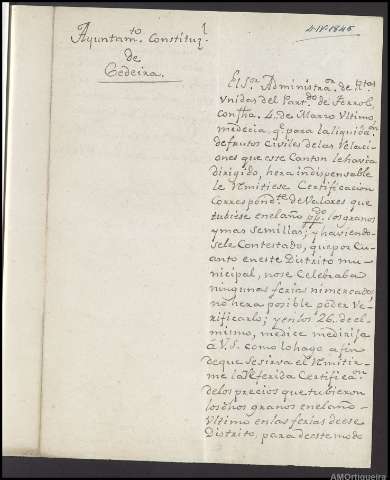 4-IV-1846
Ayuntam.to Constituz.l
de
Cedeira.
El Sor. Administra.or de Rtas
Vnidas del Part.do de Ferrol,
con fha. 4. de Marzo Vltimo,
medecia q.e para la liquid.on
de frutos Civiles de las Relacio
nes que ese Canton le havia
dirigido, hera indispensable
le Remitiese Certificacion
Correspond.te de Valores que
tubiese en el año pp.do los granos
y mas Semillas; y haviendo-
sele Contestado, que por Cu-
anto en este Distrito mu-
nicipal, no se Celebraba
ningunas ferias ni mercados
no hera posible poder Ve-
rificarlo; y en los 26. de el
mismo, me dice me dirija
a V.S. como lo hago a fin
de que se sirva el Remitir-
me la Referida Certifica.on
de los precios que tubieron
los dhos granos en el año
Vltimo en las ferias de ese
Distrito, para de este modo
AMOrtigueira